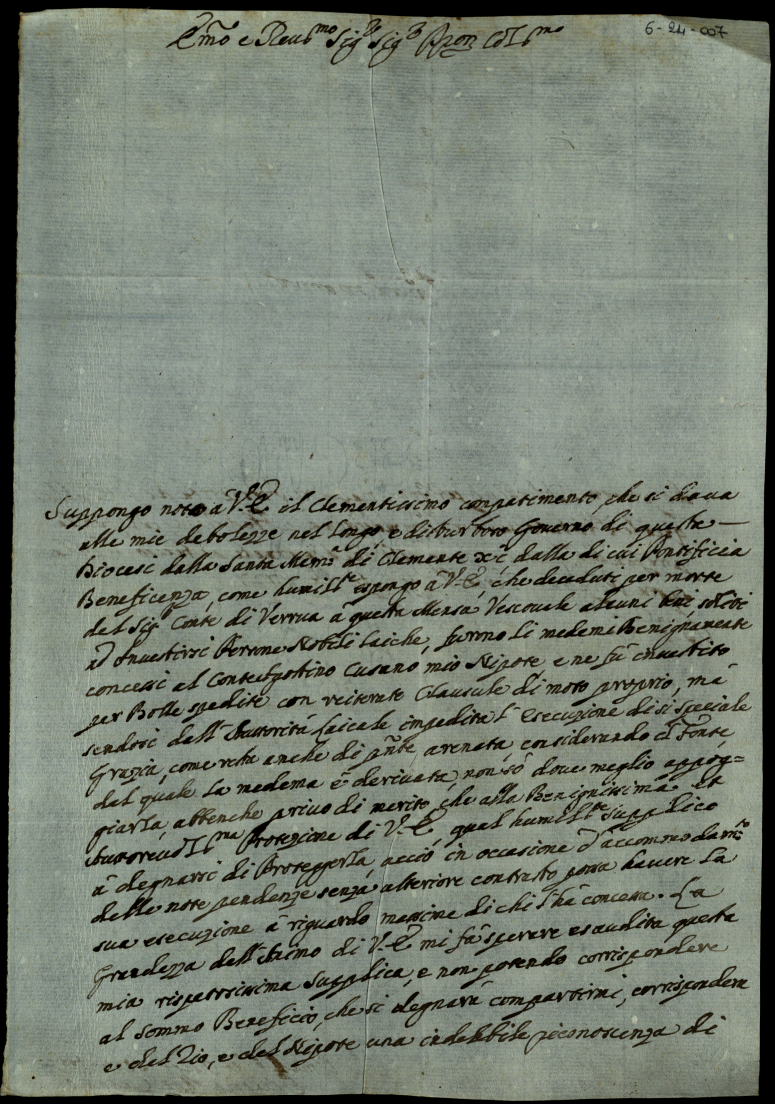 6-24-007
Em̃o e Reu.mo Sig.re Sig.re Pron Col.mo
Suppongo noto à V.E. il Clementissimo compatimento, che si daua
alle mie debolezze nel longo, e disturboso Gouerno di questa
Diocesi dalla Santa Mem.a di Clemente XI. dalla di cui Pontificia
Beneficenza, come humil.te espongo à V.E., che decaduti per morte
del Sig.r Conte di Verrua à questa Mensa Vescouale alcuni beni soliti
ad Inuestirsi Persone Nobili Laiche, furno li medemi Benignamente
concessi al Conte Agostino Cusano mio Nipote e ne fù inuestito
per Bolle spedite con reiterate Clausule di moto proprio, mà
sendosi dall'Auttorità Laicale impedita l'esecuzione di sì speciale
Grazia, come resta anche di pñte arenata, considerando il Fonte,
dal quale la medema è deriuata, non sò doue meglio appog=
giarla, abbenche priuo di merito, che alla Benignissima, et
Auttoreuol.ma Protezione di V.E., qual humil.te supplico
à degnarsi di Proteggerla, acciò in occasione d'accommodam.to
delle note pendenze senza ulteriore contrasto possa hauere la
sua esecuzione à riguardo massime di chi l'hà concessa. La
Grandezza dell'Animo di V.E. mi fà sperare esaudita questa
mia rispettosissima supplica, e non potendo corrispondere
al sommo Beneficio, che si degnarà compartirmi, corrisponderà
e del Zio, e del Nipote una indelebile riconoscenza di